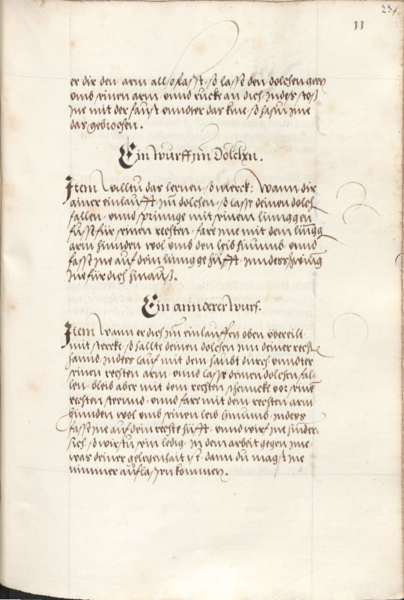 234
11
er dir den arm also fasst, so lasst den dolchen geen
umb seinen arm unnd ruck an dich inndes stoss
ine mit der faust unnder das knie so hastu ime
das gebrochen.
Ein wurff im Dolchen.
Item willtu das lernen, so merck: wann dir
ainer einlaufft im dolchen, so lass deinen dolch
fallen, unnd spring mit deinem linnggen
fuss für seinen rechten, far ime mit dem linngg
arm hinnden wol umb den leib hinumb unnd
fass ine auf dein lingge hüfft, inndes schwing
ine für dich hinauss.
Ein annderer wurf.
Item wann er dich im einlauffen oben übereilt
mit sterck, so hallt deinen dolchen inn deiner recht
hannd, inndes lauf mit dem haubt durch unnder
seinen rechten arm, unnd lass deinen dolchen fal
len, bleib aber mit dem rechten schennckl vor seinem
rechten steend, unnd far mit dem rechten arm
hinnden wol umb seinen leib hinumb, inndes
fass ine auf dein rechte hüfft, unnd wirf ine hinder
sich, so wirstu sein ledig, in dem arbeit gegen ime
was deiner gelegenhait ist, dann du magst ine
nimmer auflassen kommen.